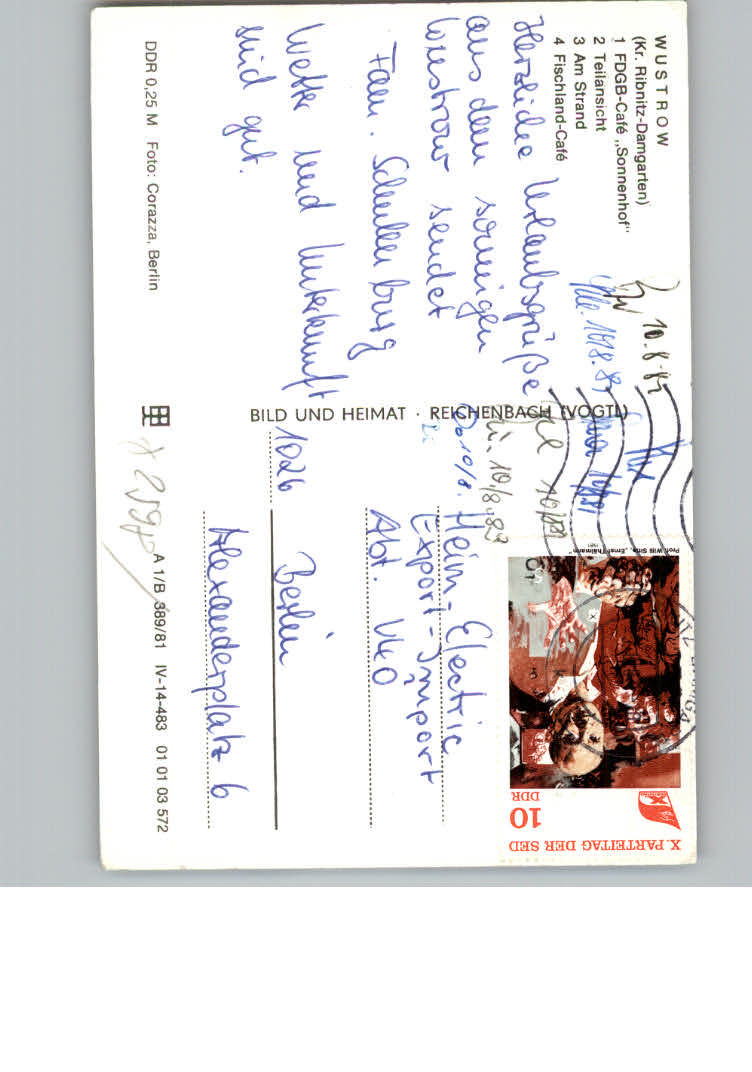 WUSTROW
(Kr. Ribnitz-Damgarten)
1 FDGB-Café „Sonnenhof"
2 Teilansicht
3 Am Strand
4 Fischland-Café
Herzliche Urlaubsgrüße
aus dem sonnigen
Wustrow sendet
Fam. Schullenburg
Wetter und Unterkunft
sind gut.
DDR 0,25 M Foto: Corazza, Berlin
BILD UND HEIMAT · REICHENBACH (VOGTL)
10.8.
10/8.
10/8.82
Heim-Electric
Export-Import
Abt. V40
1026 Berlin
Alexanderplatz 6
A 1/B 389/81 IV-14-483 01 01 03 572
X. PARTEITAG DER SED
10
DDR
Prof. Willi Sitte, „Ernst Thälmann"
1981